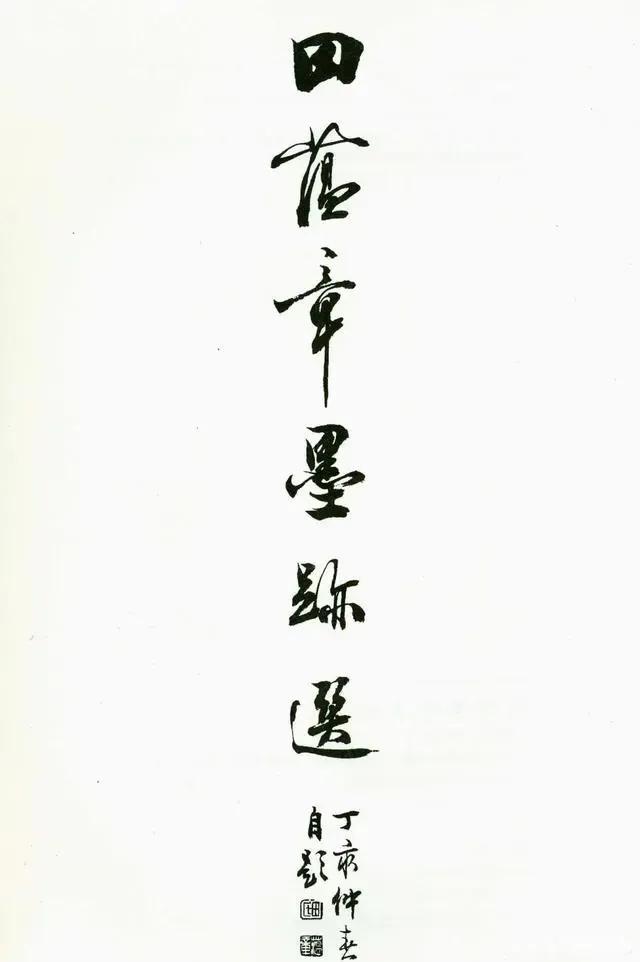 田蕴章墨跡選
丁亥仲春
自題